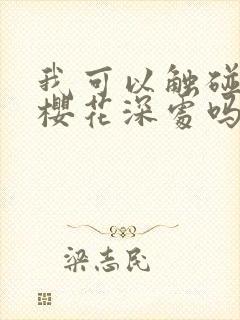 我可以触碰
樱花深处吗
梁志民